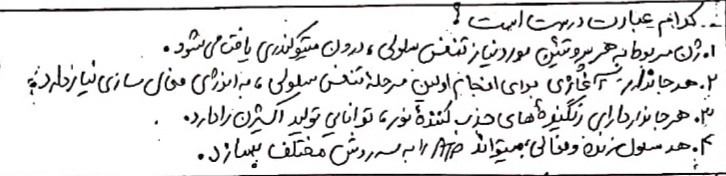 کدام عبارت درست است؟
۱. ژن مربوط به هر پروتئین مورد نیاز تنفس سلولی، درون میتوکندری یافت می‌شود.
۲. هر جاندار آغازی برای انجام اولین مرحلهٔ تنفس سلولی، به انرژی فعال سازی نیاز دارد.
۳. هر جاندار دارای رنگیزه‌های جذب کنندهٔ نور، توانایی تولید اکسیژن را دارد.
۴. هر سلول زنده و فعالی، میتواند ATP را به سه روش مختلف بسازد.